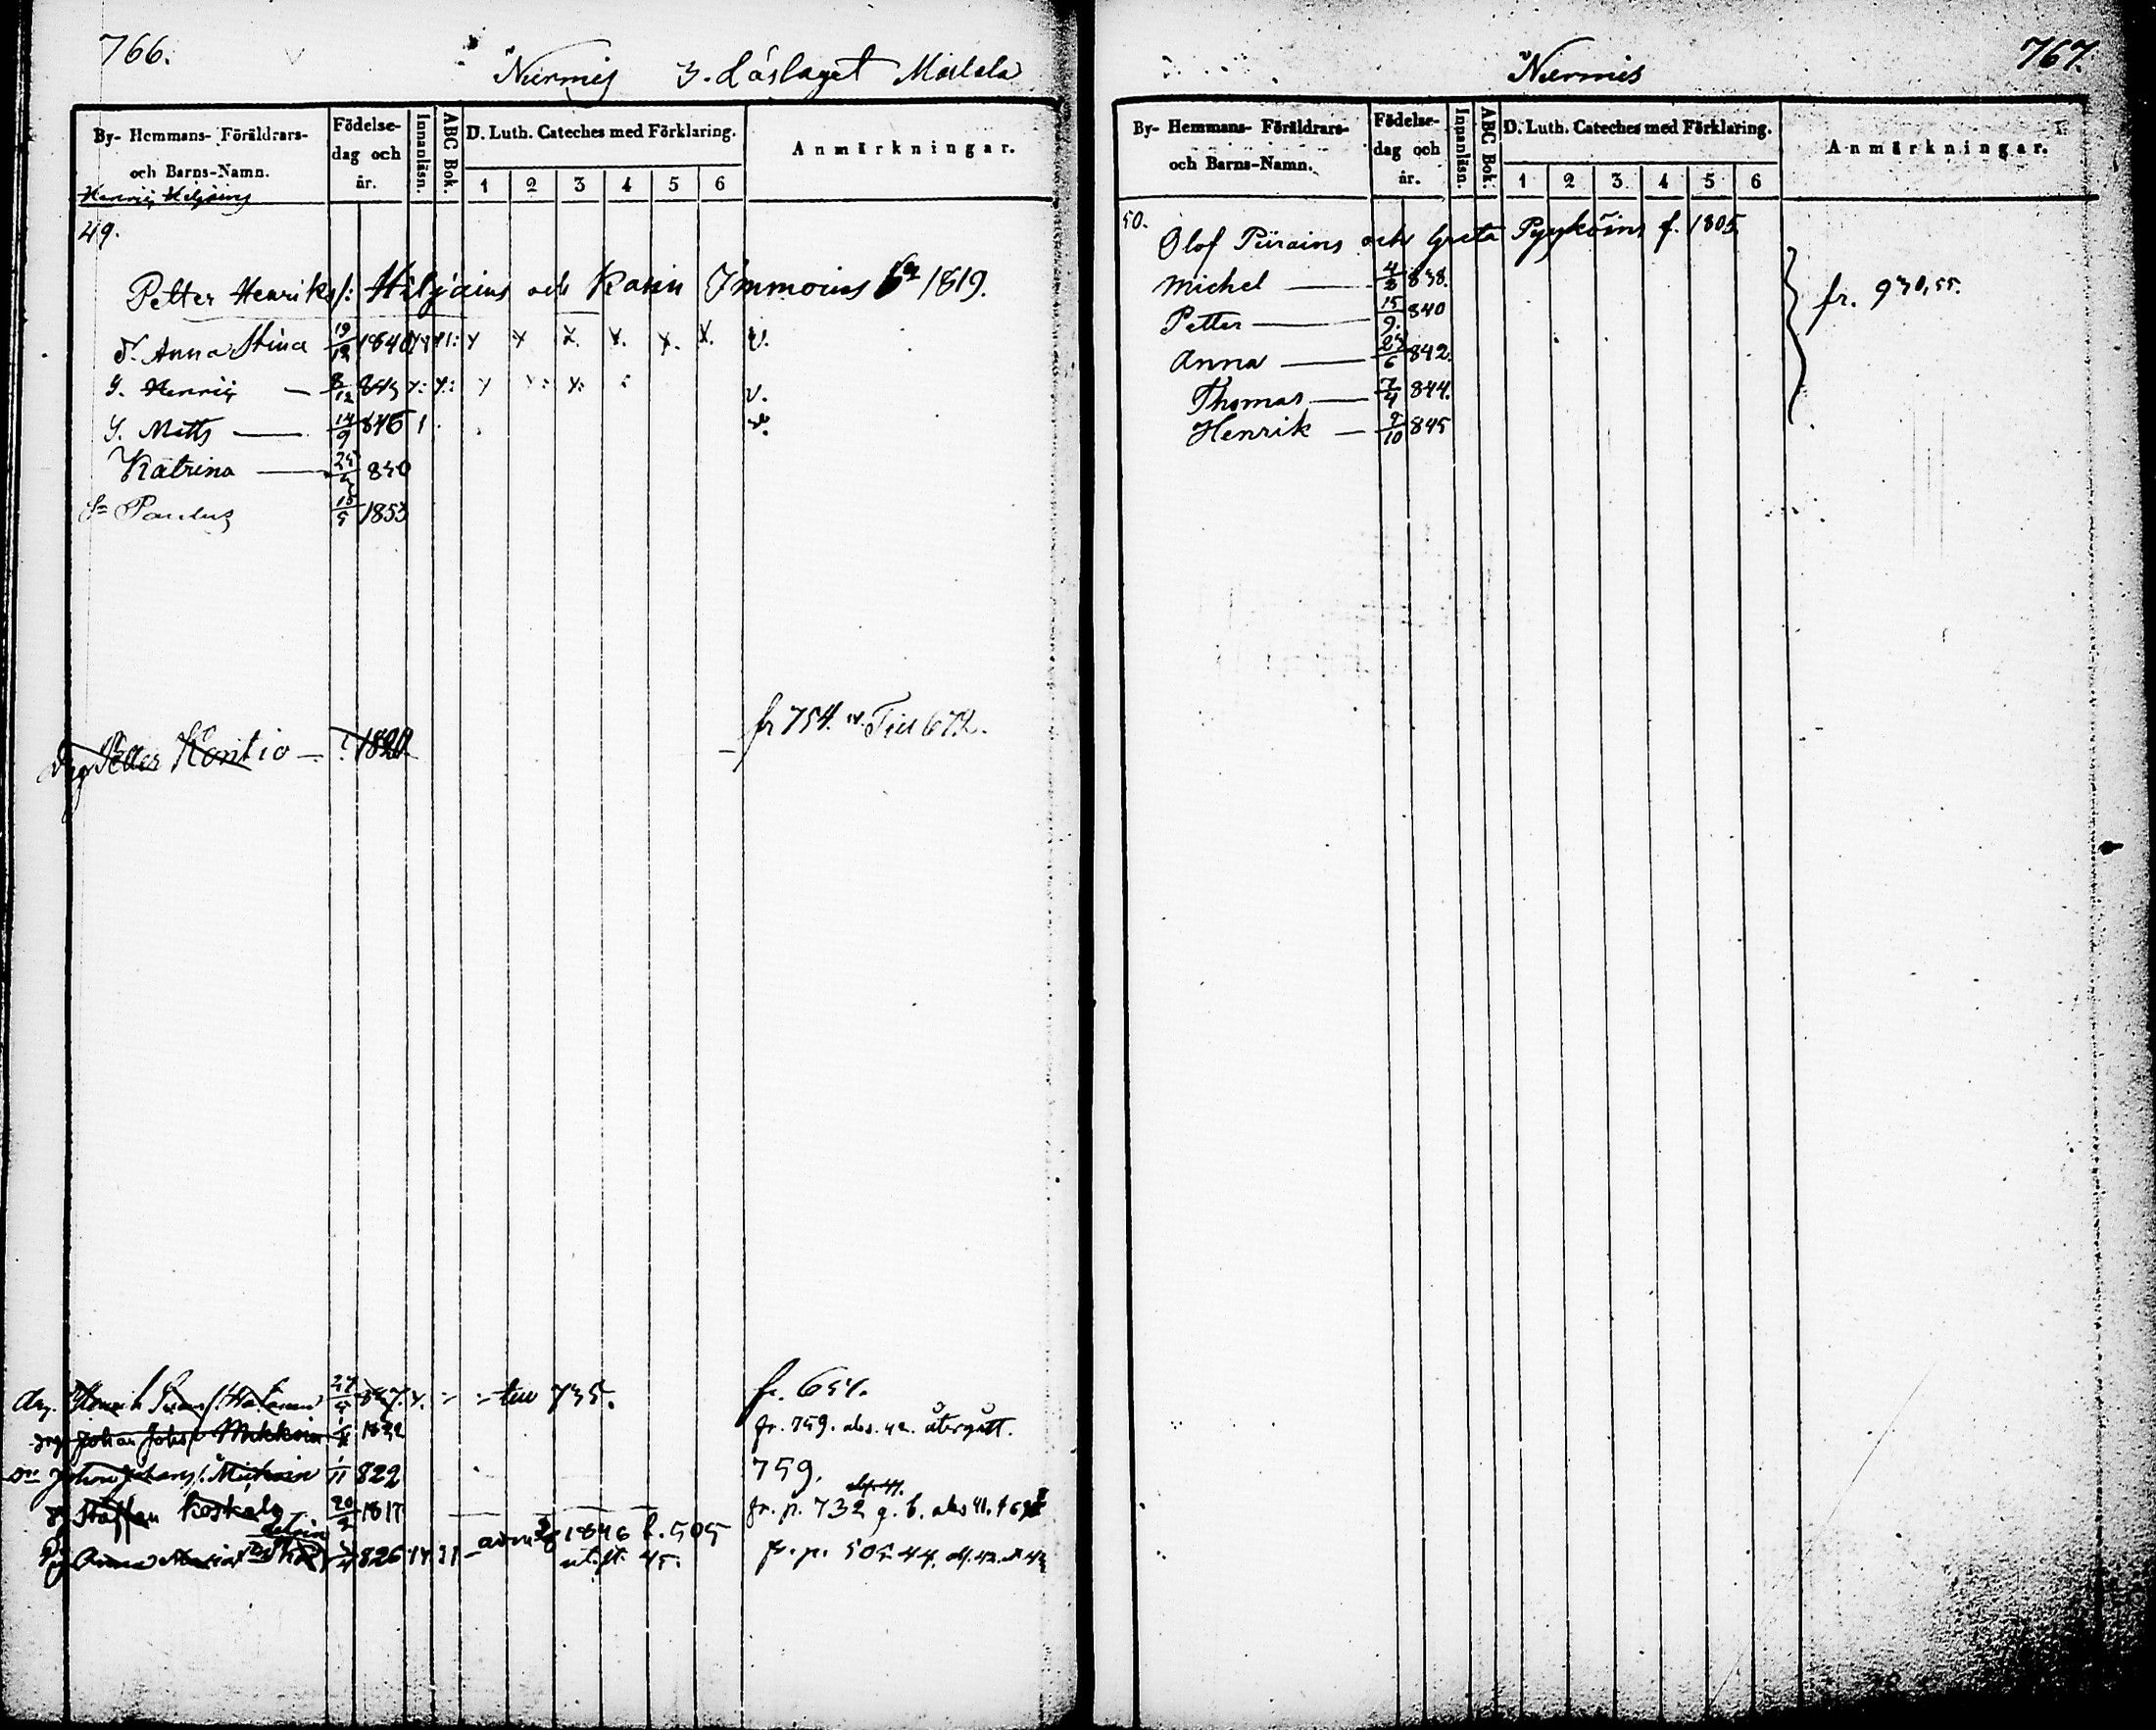 766.
Nurmis 3. Läslaget Mæelelä
By- Hemmans- Föräldrars- och Barns-Namn.
Födelse-dag och år.
Innanläsn.
ABC Bok.
D. Luth. Cateches med Förklaring.
1 2 3 4 5 6
Anmärkningar.
Henric Hiljains
49.
Petter Henriks/: Hiljains och Karin Immoins 1819.
D. Anna Stina 19/12 1840 v.
S. Henric — 8/12 843 v.
S. Matts — 14/9 846 1
Katrina — 25 850
Sn Paulus 15/5 1853
Drg Petter Kontio — 1820 — fr 754. Till 672.
Drg. Henrik 27 till 735. fr. 651.
drg Johan Johs/: Mikkoin 1822 fr. 759. abs. 42. återgått.
Johan Johans/: Mickoin 1/11 822 759.
dr Staffan Koskelo 20/2 1817 fr. p. 732 g. b. abs 41.
Pig Anna Maria 826 1846 p. 505 fr. p. 505. 44.
ut. fl. 45.
767.
Nurmis
By- Hemmans- Föräldrars- och Barns-Namn.
Födelse-dag och år.
Innanläsn.
ABC Bok.
D. Luth. Cateches med Förklaring.
1 2 3 4 5 6
Anmärkningar.
50.
Olof Piirains och Greta Pyyköins f. 1805
Michel — 4/3 838.
Petter — 15/9. 840 fr. 930,55.
Anna — 24/6 842.
Thomas — 7/4 844.
Henrik — 9/10 845